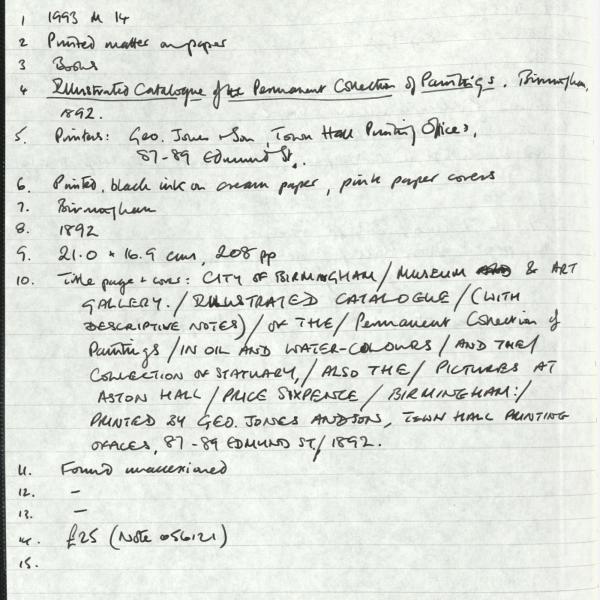 1 1993 M 14
2 Printed matter on paper
3 Books
4 Illustrated Catalogue of the Permanent Collection of Paintings. Birmingham,
1892.
5. Printers: Geo. Jones & Son, Town Hall Printing Offices,
87-89 Edmund St.
6. Printed, black ink on cream paper, pink paper covers
7. Birmingham
8. 1892
9. 21.0 x 16.9 cms, 208 pp
10. Title page & cover: CITY OF BIRMINGHAM / MUSEUM & ART
GALLERY. / ILLUSTRATED CATALOGUE / (WITH
DESCRIPTIVE NOTES) / OF THE / Permanent Collection of
Paintings / IN OIL AND WATER-COLOURS / AND THE /
COLLECTION OF STATUARY, / ALSO THE / PICTURES AT
ASTON HALL / PRICE SIXPENCE / BIRMINGHAM: /
PRINTED BY GEO. JONES AND SON, TOWN HALL PRINTING
OFFICES, 87-89 EDMUND ST / 1892.
11. Found unaccessioned
12. -
13. -
14. £25 (Note 056121)
15.